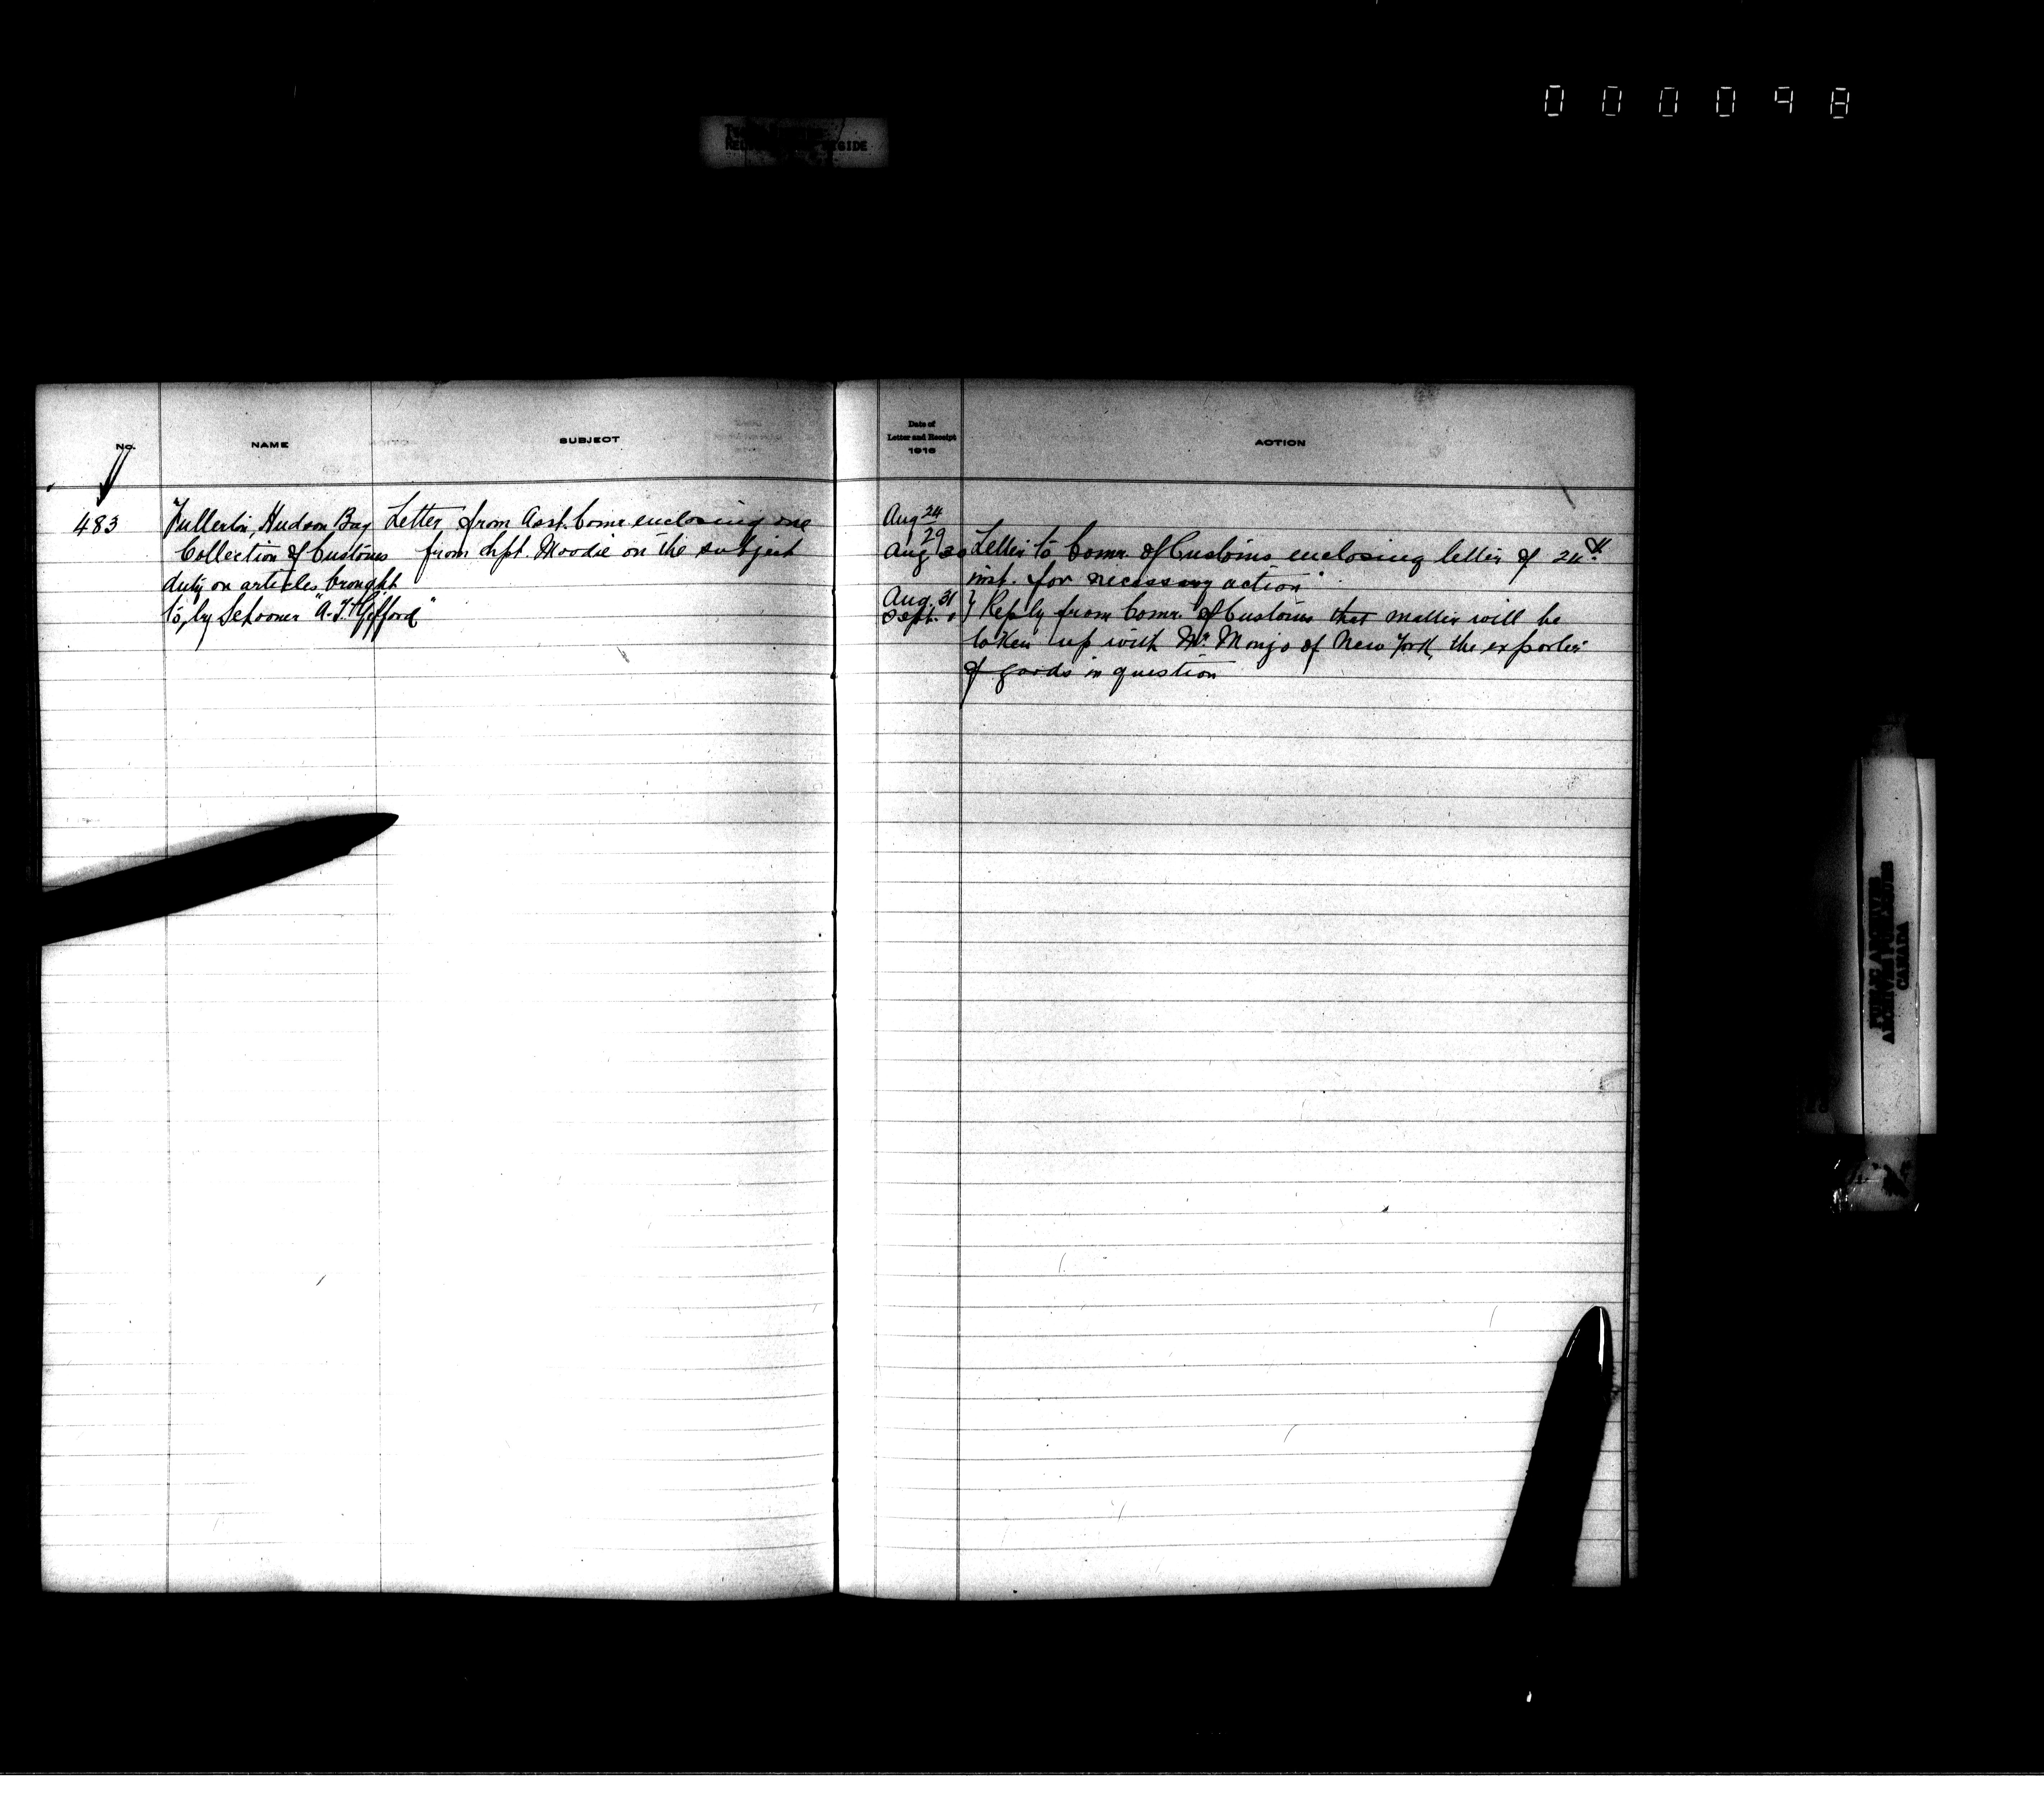 000098
No.
NAME
SUBJECT
483
Fullerton, Hudson Bay
Collection of Customs
duty on articles brought
to, by Schooner "A.T. Gifford"
Letter from Asst. Comr enclosing one
from Supt. Moodie on the subject
Date of
Letter and Receipt
1916
ACTION
Aug 24
29
Aug 30 Letter to Comr. of Customs enclosing letter of 24th
inst. for necessary action.
Aug. 31
Sept. 1 } Reply from Comr. of Customs that matter will be
taken up with Mr. Monjo of New York, the exporter
of goods in question
PUBLIC ARCHIVES
ARCHIVES PUBLIQUES
CANADA